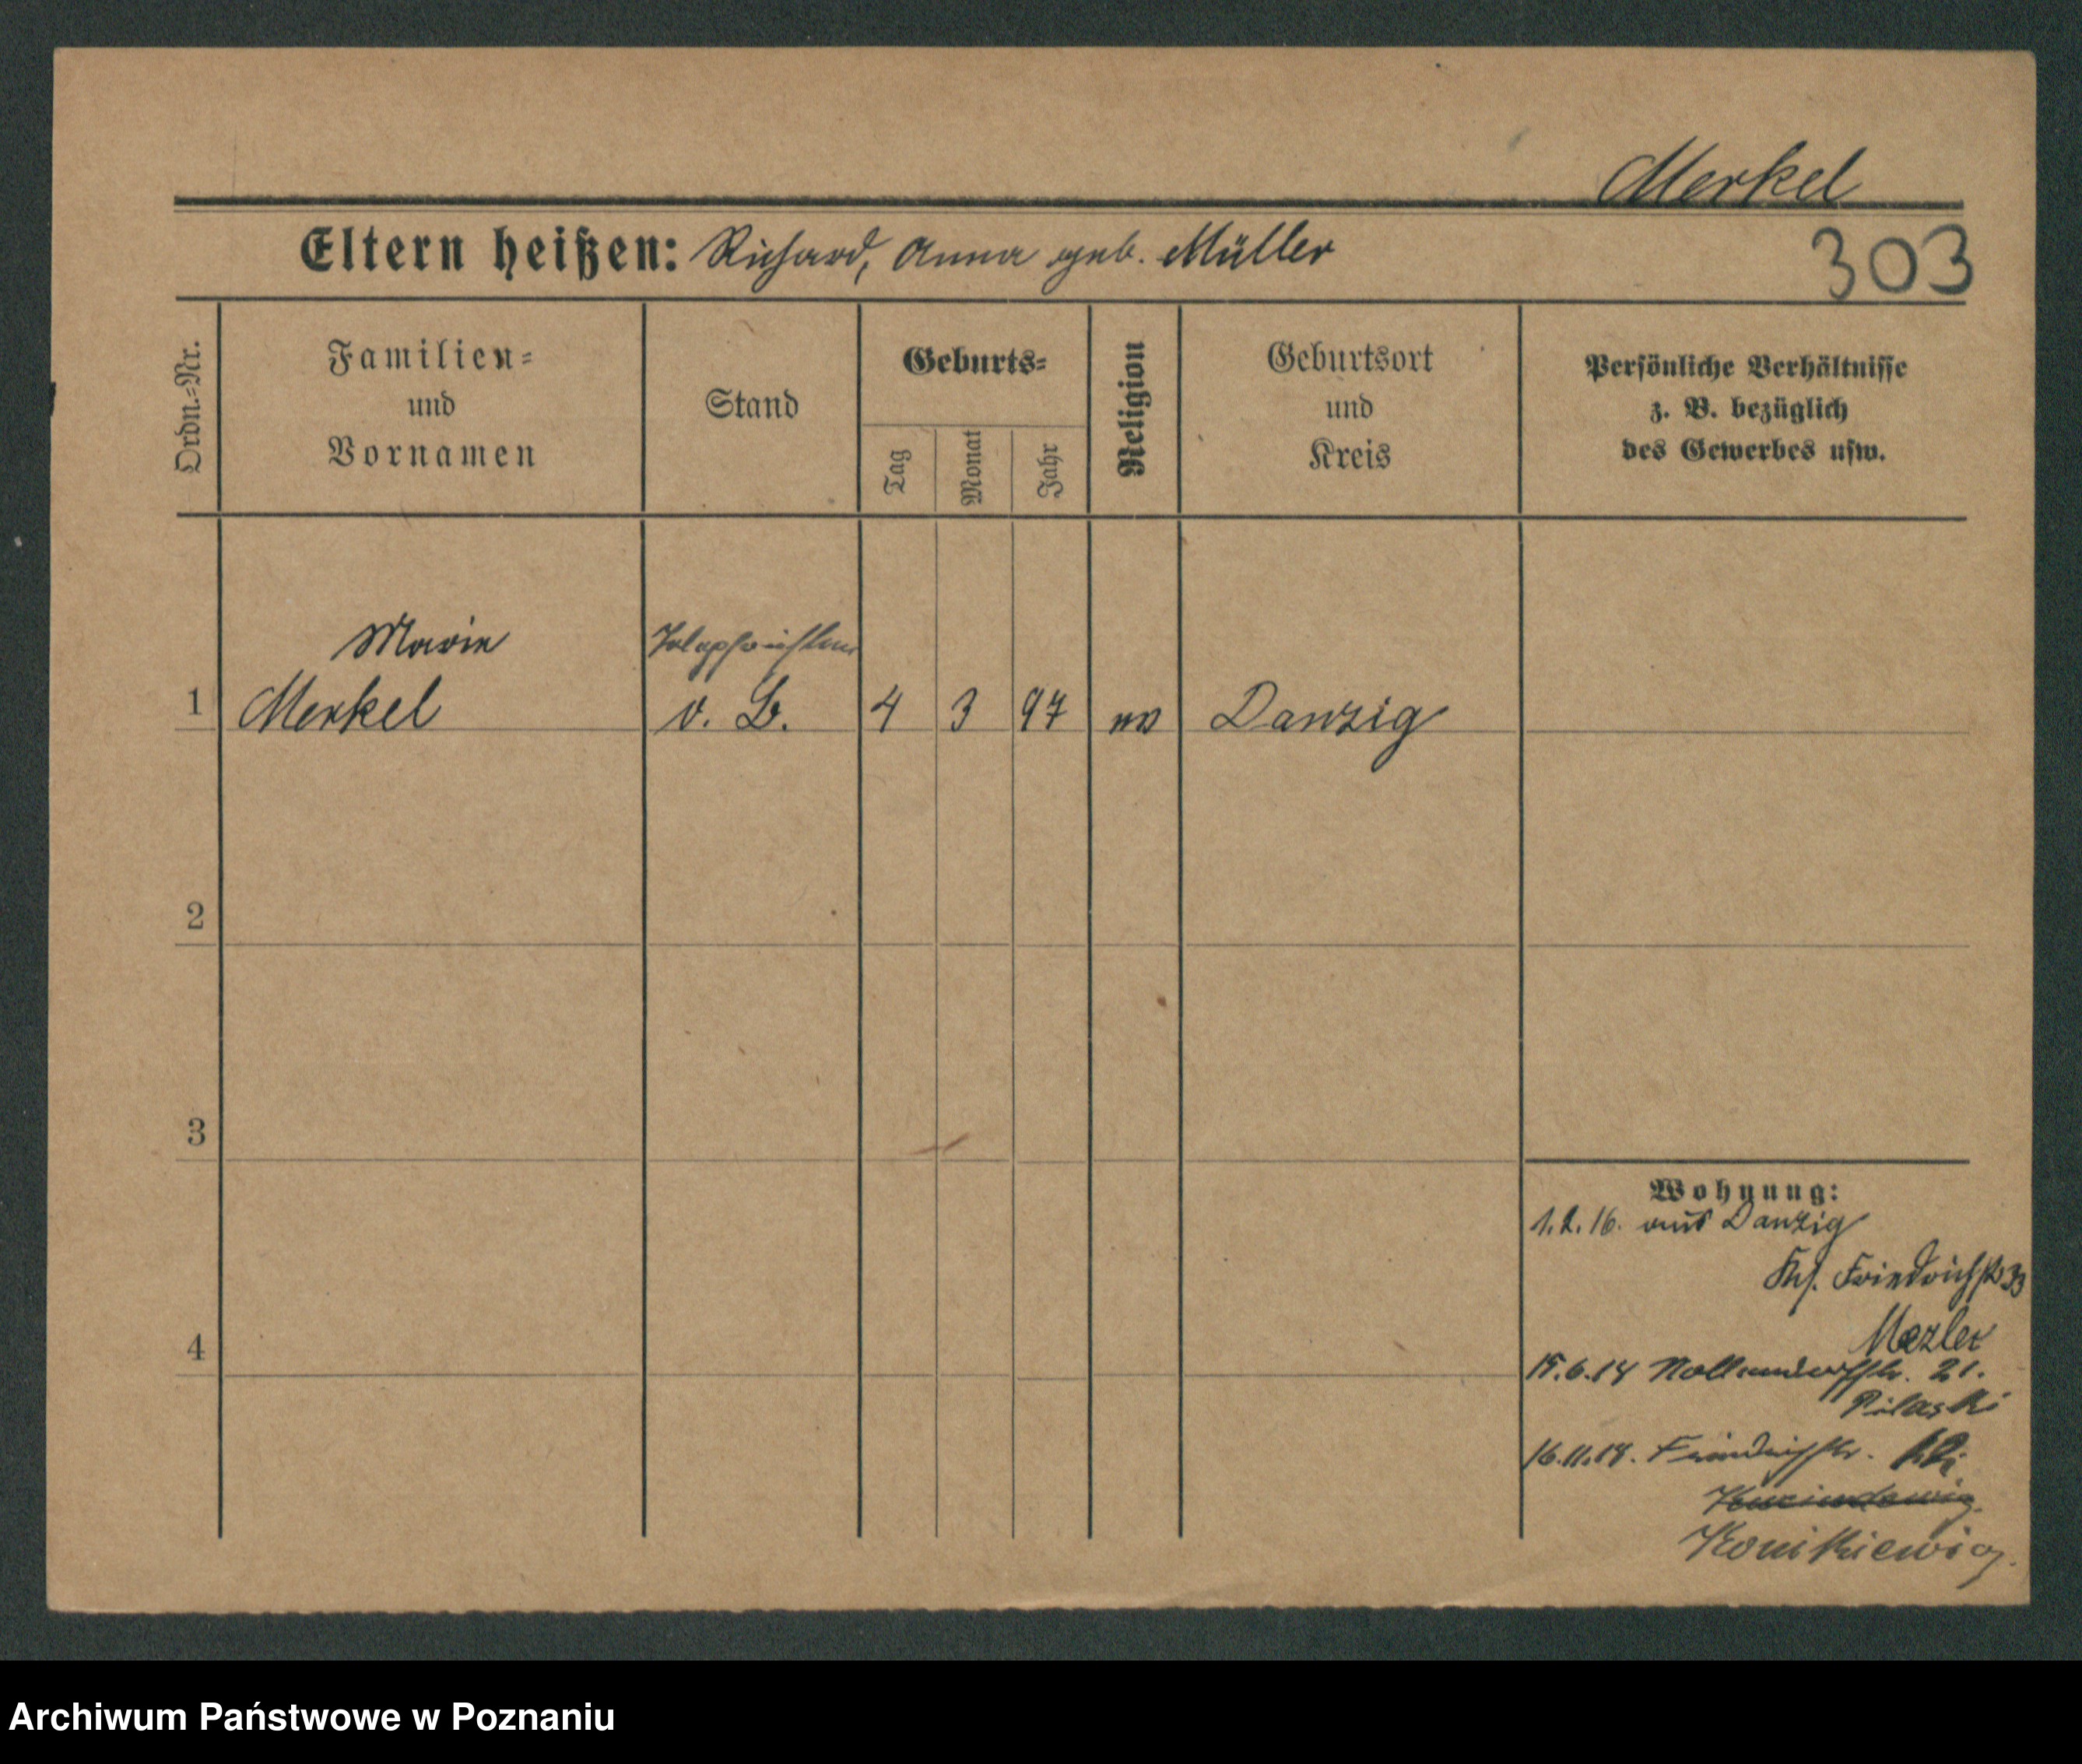 Merkel
Eltern heißen: Richard, Anna geb. Müller
303
Ordn.-Nr.
Familien-
und
Vornamen
Stand
Geburts-
Tag
Monat
Jahr
Religion
Geburtsort
und
Kreis
Persönliche Verhältnisse
z. B. bezüglich
des Gewerbes usw.
Marie
1 Merkel v. B. 4 3 97 ev Danzig
2
3
4
Wohnung:
1.2.16. aus Danzig
Friedrichstr 33
Mezler
Nollendorffstr. 21.
Pilaski
16.11.18. Friedrichstr.
Konikiewicz.